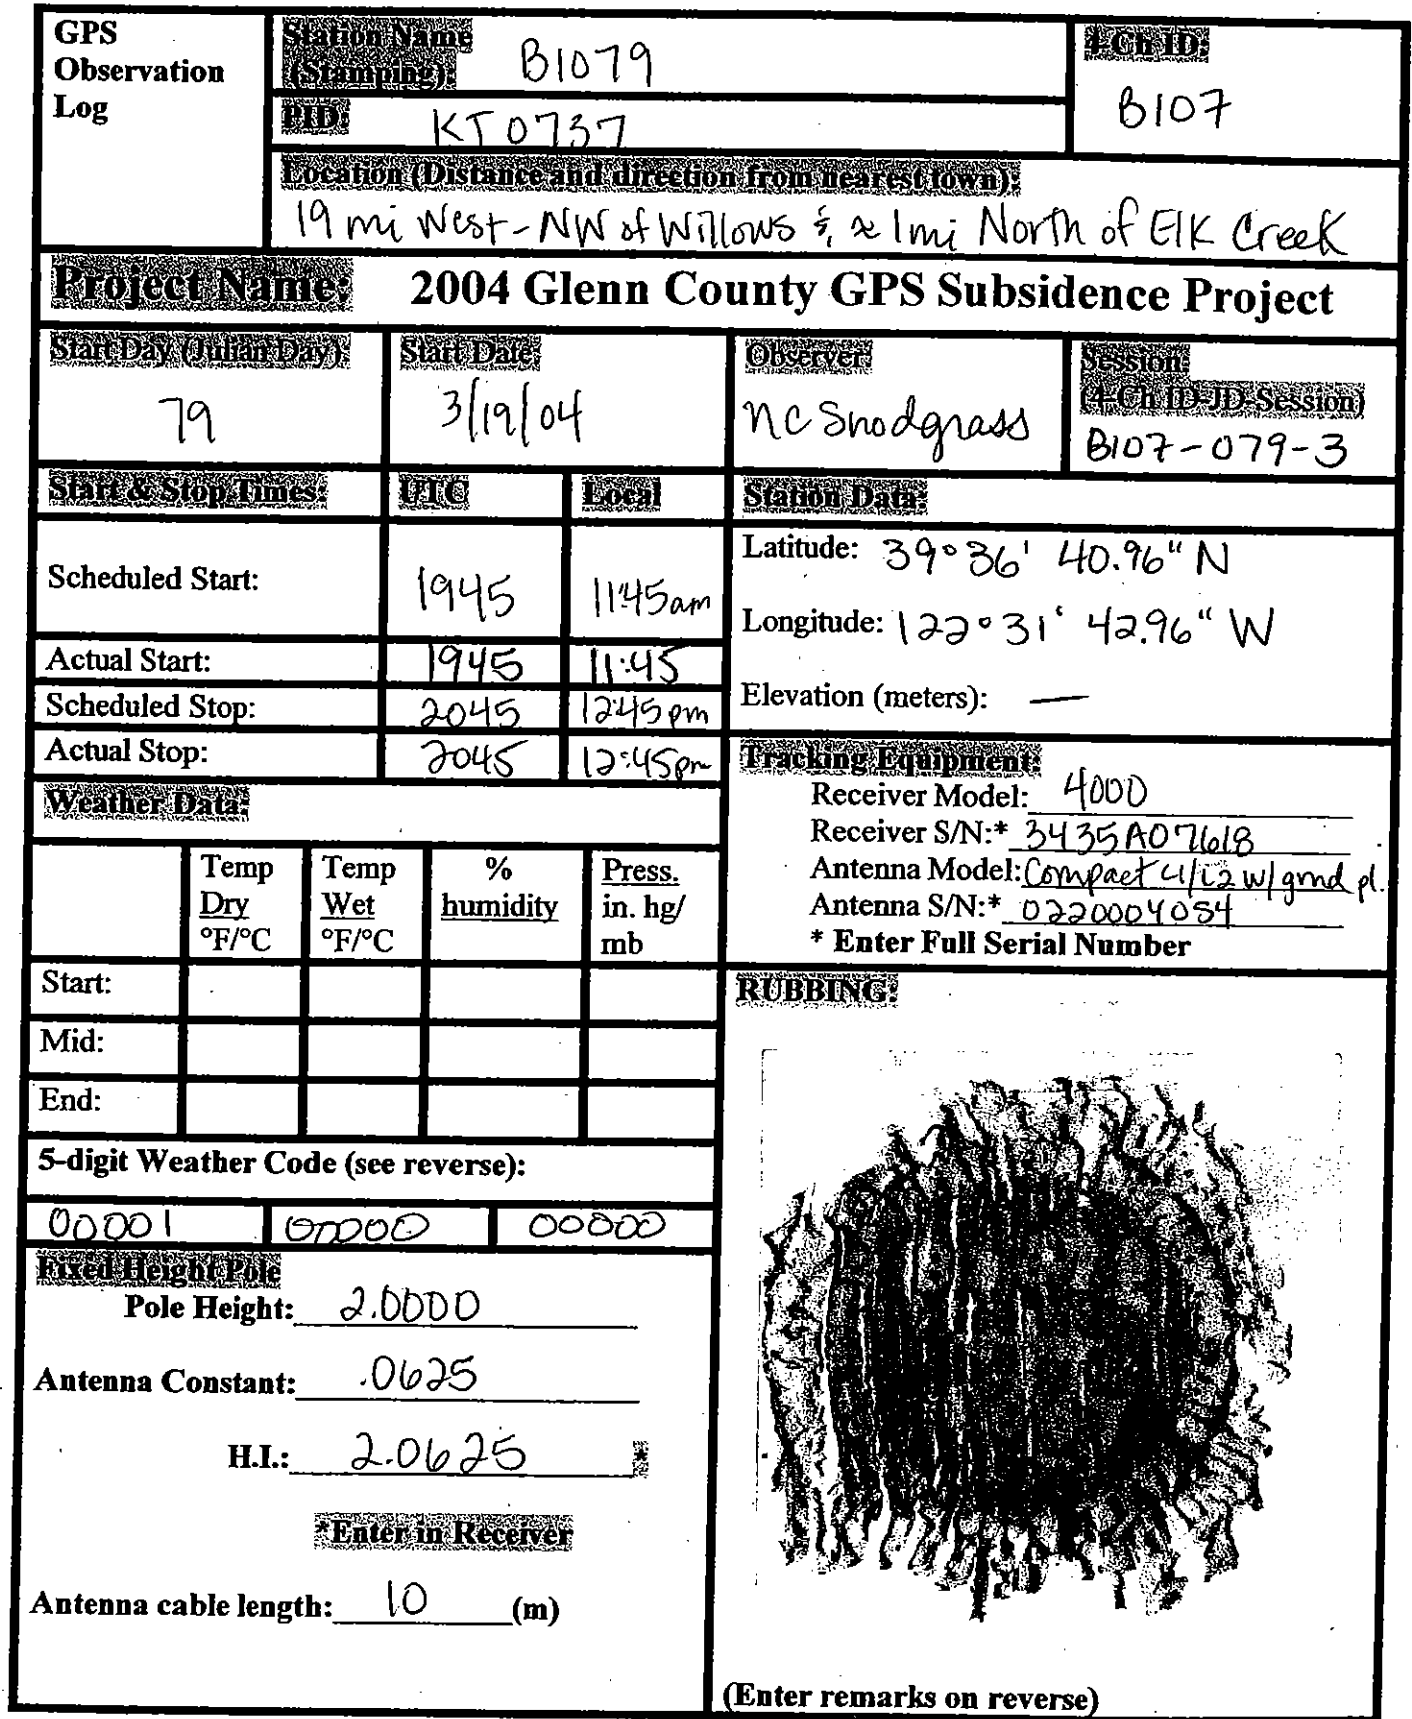 GPS
Observation
Log
Station Name
(Stamping): B1079
4-Ch ID:
B107
PID: KT0737
Location (Distance and direction from nearest town):
19 mi West-NW of Willows & ≈ 1mi North of Elk Creek
Project Name: 2004 Glenn County GPS Subsidence Project
Start Day (Julian Day):
79
Start Date:
3/19/04
Observer:
NC Snodgrass
Session:
(4-Ch ID-JD-Session)
B107-079-3
Start & Stop Times: UTC Local
Scheduled Start: 1945 11:45am
Actual Start: 1945 11:45
Scheduled Stop: 2045 12:45pm
Actual Stop: 2045 12:45pm
Station Data:
Latitude: 39° 36' 40.96" N
Longitude: 122° 31' 42.96" W
Elevation (meters): —
Tracking Equipment:
Receiver Model: 4000
Receiver S/N:* 3435A07618
Antenna Model: Compact L1/L2 w/ grnd pl.
Antenna S/N:* 0220004054
* Enter Full Serial Number
Weather Data:
Temp
Dry
°F/°C
Temp
Wet
°F/°C
%
humidity
Press.
in. hg/
mb
Start:
Mid:
End:
5-digit Weather Code (see reverse):
00001 00000 00000
Fixed Height Pole
Pole Height: 2.0000
Antenna Constant: .0625
H.I.: 2.0625 *
*Enter in Receiver
Antenna cable length: 10 (m)
RUBBING:
(Enter remarks on reverse)